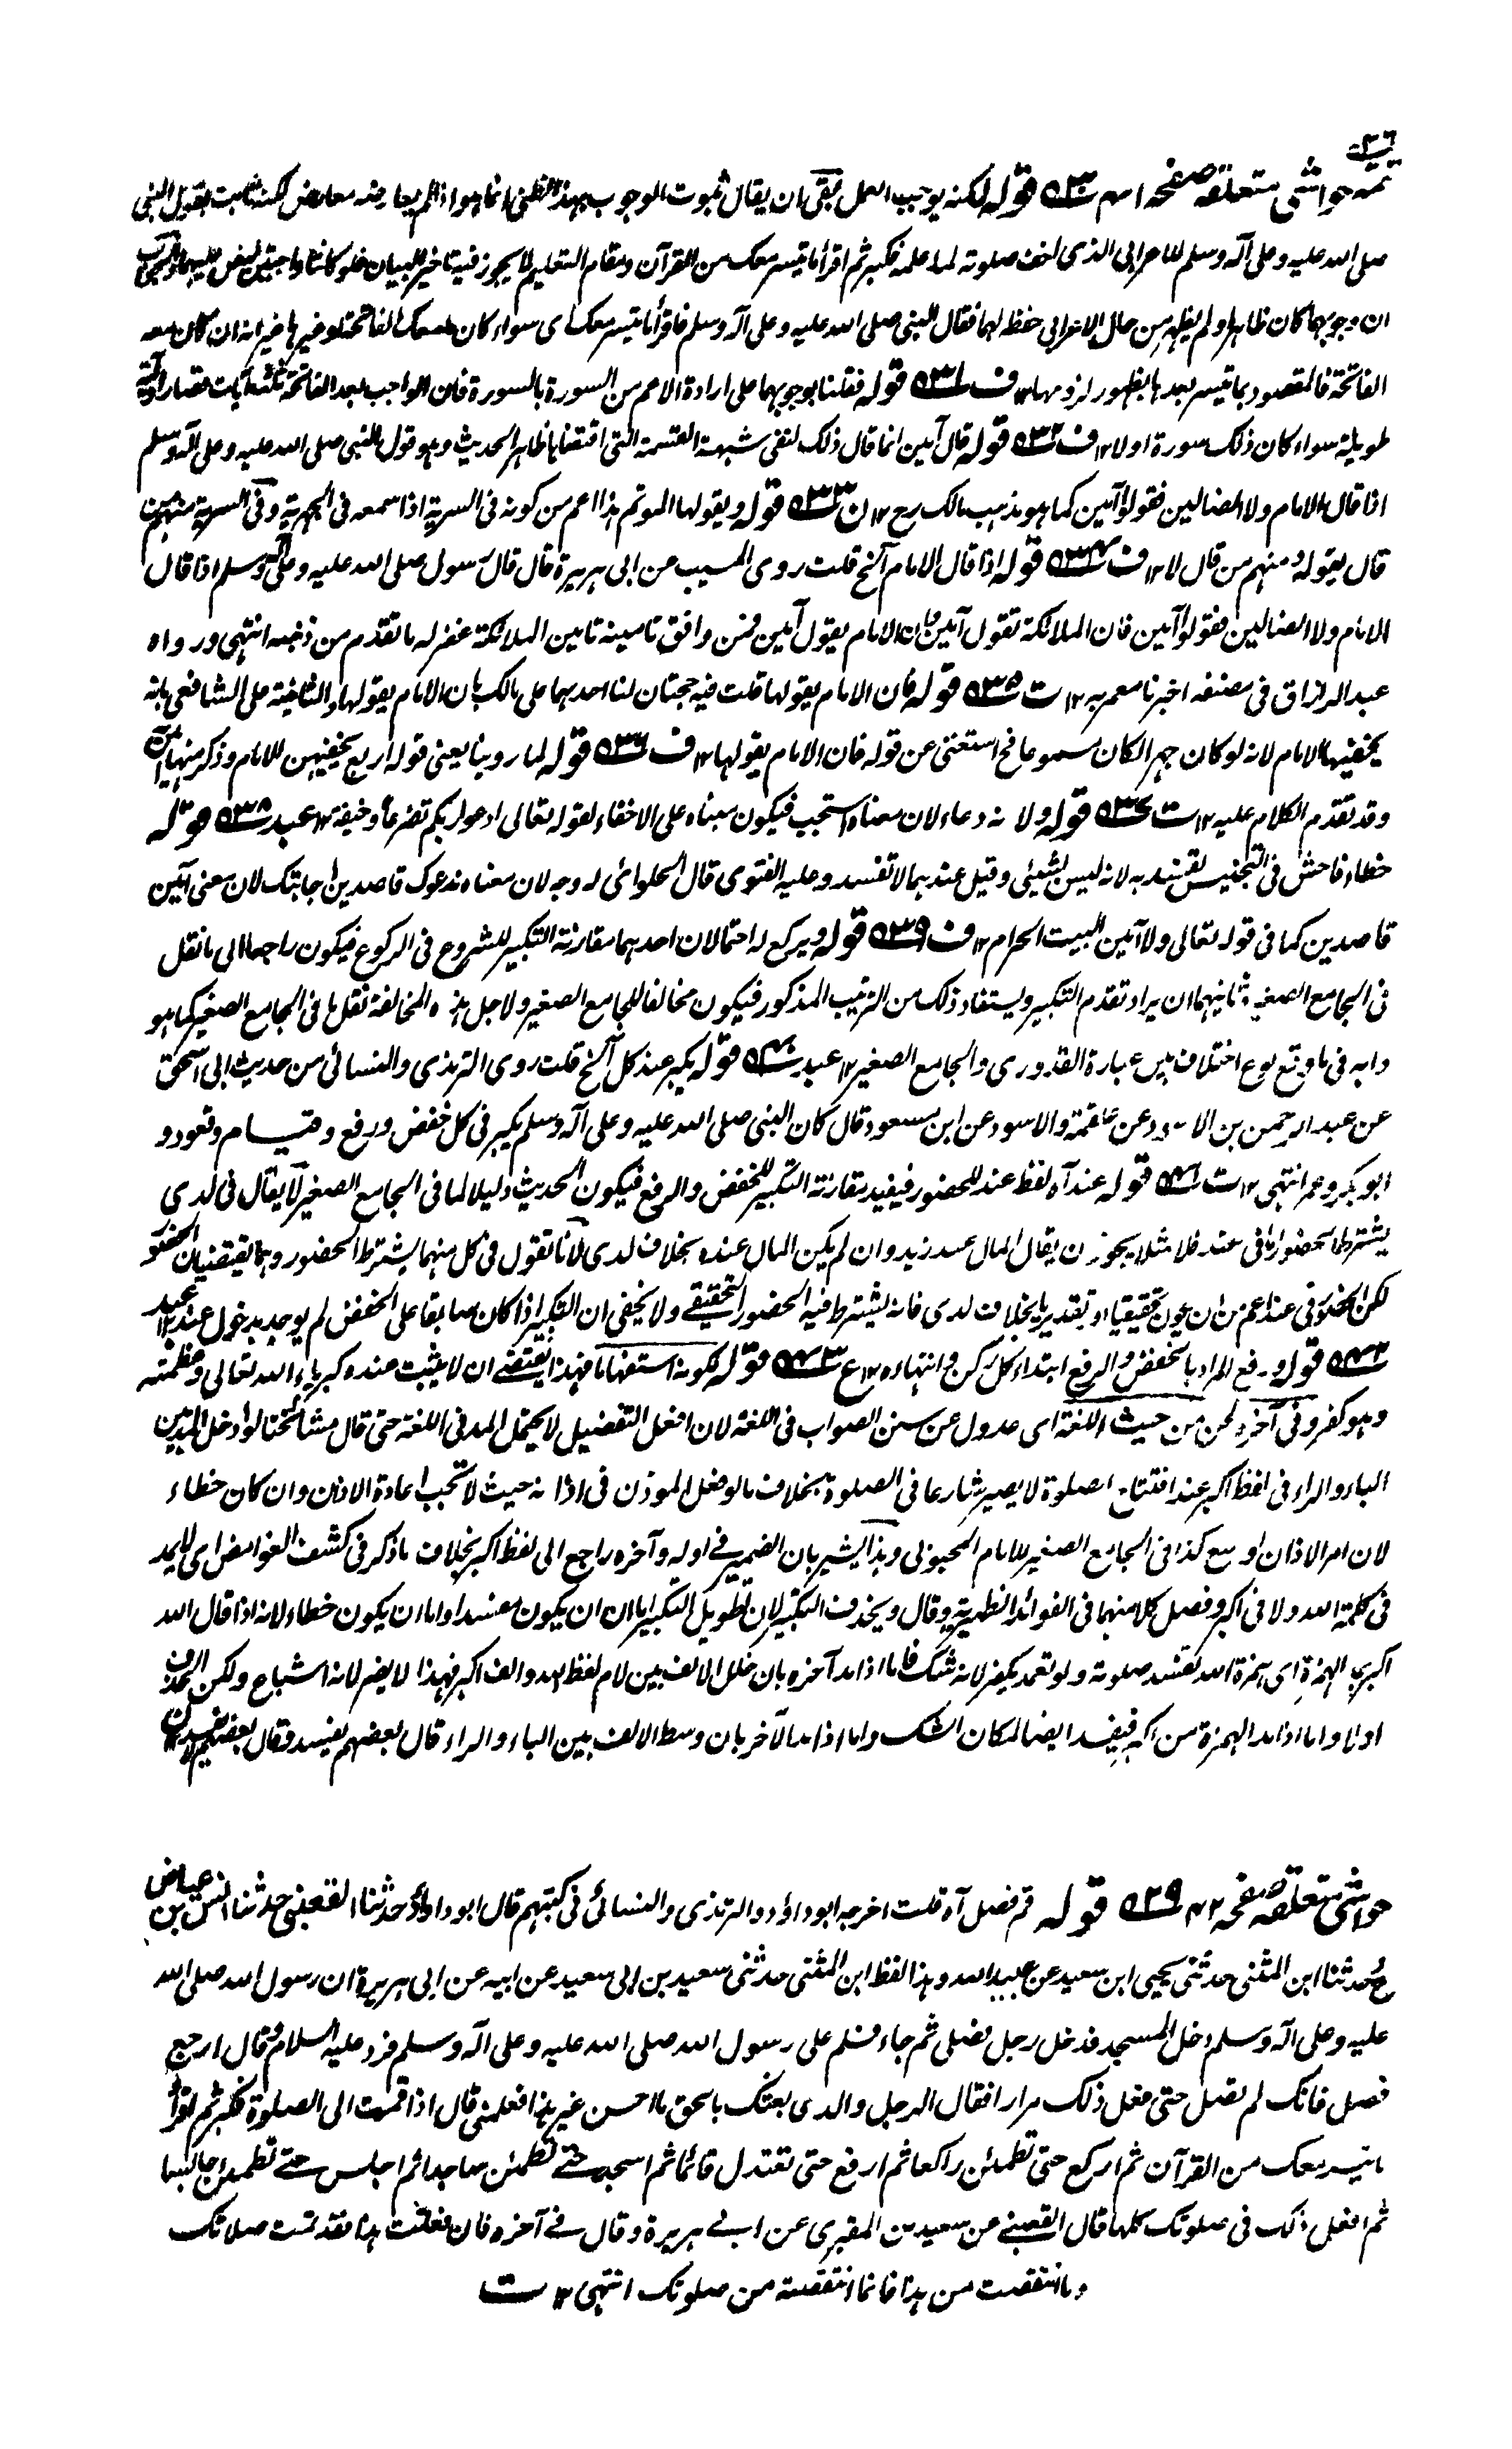 ٣٦
تتمه حواشی متعلقه صفحه ٤١ ٥٣٠ قوله لكنه يوجب العمل بقى ان يقال ثبوت الوجوب بهذا الظنى انما هو اذا لم يعارضه معارض لكنه ثابت بقول النبى
صلى الله عليه وعلى آله وسلم للاعرابى الذى اخف صلوته لما علمه فكبر ثم اقرأ ما تيسر معك من القرآن ومقام التعليم لا يجوز فيه تاخير البيان فلو كانتا واجبتين لنص عليهما والجواب
ان وجوبهما كان ظاهرا ولم يظهر من حال الاعرابى حفظه لهما فقال النبى صلى الله عليه وعلى آله وسلم فاقرأ ما تيسر معك اى سواء كان معك الفاتحة او غيرها غير انه ان كان معه
الفاتحة فالمقصود بما تيسر بعدها بظهور لزومها ١٢ ف ٥٣١ قوله فقلنا بوجوبهما على ارادة الاعم من السورة بالسورة فان الواجب بعد الفاتحة ثلث آيات قصار او آية
طويلة سواء كان ذلك سورة اولا ١٢ ف ٥٣٢ قوله قال آمين انما قال ذلك لنفى شبهة القسمة التى اقتضاها ظاهر الحديث وهو قول النبى صلى الله عليه وعلى آله وسلم
اذا قال الامام ولا الضالين فقولوا آمين كما هو مذهب مالك رح ١٢ ن ٥٣٣ قوله ويقولها الموتم هذا اعم من كونه فى السرية اذا سمعه فى الجهرية وفى السرية منهم من
قال يقوله ومنهم من قال لا ١٢ ف ٥٣٤ قوله اذا قال الامام آلخ قلت روى المسيب عن ابى هريرة قال قال رسول صلى الله عليه وعلى آله وسلم اذا قال
الامام ولا الضالين فقولوا آمين فان الملائكة تقول آمين وان الامام يقول آمين فمن وافق تامينه تامين الملائكة غفر له ما تقدم من ذنبه انتهى ورواه
عبد الرزاق فى مصنفه اخبرنا معمر به ١٢ ت ٥٣٥ قوله فان الامام يقولها قلت فيه حجتان لنا احدهما على مالك بان الامام يقولها والثانية على الشافعى بانه
يخفيها الامام لانه لو كان جهر الكان مسموعا فح استغنى عن قوله فان الامام يقولها ١٢ ف ٥٣٦ قوله لما روينا يعنى قوله اربع يخفيهن الامام وذكر منها آمين
وقد تقدم الكلام عليه ١٢ ت ٥٣٧ قوله ولانه دعاء لان معناه استجب فيكون مبناه على الاخفاء لقوله تعالى ادعوا ربكم تضرعا وخيفة ١٢ عبد ٥٣٨ قوله
خطاء فاحش فى التجنيس تفسد به لانه ليس بشيئ وقيل عندهما لا تفسد وعليه الفتوى قال الحلوائى له وجه لان معناه ندعوك قاصدين اجابتك لان معنى آمين
قاصدين كما فى قوله تعالى ولا آمين البيت الحرام ١٢ ف ٥٣٩ قوله ويركع له احتمالان احدهما مقارنة التكبير للشروع فى الركوع فيكون راجعا الى ما نقل
فى الجامع الصغير ثانيهما ان يراد تقدم التكبير ويستفاد ذلك من الترتيب المذكور فيكون مخالفا للجامع الصغير ولاجل هذه المخالفة نقل ما فى الجامع الصغير كما هو
دابه فى ما وقع نوع اختلاف بين عبارة القدورى والجامع الصغير ١٢ عبد ٥٤٠ قوله يكبر عند كل آلخ قلت روى الترمذى والنسائى من حديث ابى اسحق
عن عبد الرحمن بن الاسود عن علقمة والاسود عن ابن مسعود قال كان النبى صلى الله عليه وعلى آله وسلم يكبر فى كل خفض ورفع وقيام وقعود و
ابو بكر وعمر انتهى ١٢ ت ٥٤١ قوله عند آه لفظ عند للحضور فيفيد مقارنة التكبير للخفض والرفع فيكون الحديث دليلا لما فى الجامع الصغير لا يقال فى لدى
يشترط الحضور لا فى عند فلا مثلا يجوز ان يقال المال عند زيد وان لم يكن المال عنده بخلاف لدى لانا نقول فى كل منهما يشترط الحضور وهما يقتضيان الحضور
لكن الحضور فى عند اعم من ان يكون تحقيقيا او تقديريا بخلاف لدى فانه يشترط فيه الحضور التحقيقے ولا يخفى ان التكبير اذا كان سابقا على الخفض لم يوجد مدخول عند ١٢ عبد
٥٤٢ قوله ورفع المراد بالخفض والرفع ابتداء كل ركن وانتهاءه ١٢ ع ٥٤٣ قوله لكونه استفهاما فهذا يقتضے ان لا يثبت عنده كبرياء الله تعالى وعظمته
وهو كفر وفى آخره لحن من حيث اللغة اى عدول عن سنن الصواب فى اللغة لان افعل التفضيل لا يحتمل المد فى اللغة حتى قال مشائخنا لو ادخل المد بين
الباء والراء فى لفظ اكبر عند افتتاح الصلوة لا يصير شارعا فى الصلوة بخلاف ما لو فعل الموذن فى اذانه حيث لا تجب اعادة الاذان وان كان خطاء
لان امر الاذان اوسع كذا فى الجامع الصغير للامام المحبوبى وهذا يشير بان الضمير فے اوله وآخره راجع الى لفظ اكبر بخلاف ما ذكر فى كشف الغوامض اى لا يمد
فى كلمة الله ولا فى اكبر وفصل كلامنهما فى الفوائد الظهيرية وقال ويحذف التكبير لان تطويل التكبير اما ان يكون مفسدا واما ان يكون خطاء لانه اذا قال الله
اكبر بمد الهمزة اى همزة الله تفسد صلوته ولو تعمد يكفر لانه شك فاما اذا مد آخره بان خلل الالف بين لام لفظ الله والف اكبر فهذا لا يضر لانه اشباع ولكن الحذف
اولى واما اذا مد الهمزة من اكبر فيفسد ايضا لمكان الشك واما اذا مد الآخر بان وسط الالف بين الباء والراء قال بعضهم يفسد وقال بعضهم لا يفسد ١٢ ن
حواشى متعلقه صفحه ٤٢ ٥٢٩ قوله قم فصل آه قلت اخرجه ابو داؤد والترمذى والنسائى فى كتبهم قال ابو داؤد حدثنا القعنبى حدثنا انس بن عياض
ح حدثنا ابن المثنى حدثنى يحيى ابن سعيد عن عبيد الله وهذا لفظ ابن المثنى حدثنى سعيد بن ابى سعيد عن ابيه عن ابى هريرة ان رسول الله صلى الله
عليه وعلى آله وسلم دخل المسجد فدخل رجل فصلى ثم جاء فسلم على رسول الله صلى الله عليه وعلى آله وسلم فرد عليه السلام وقال ارجع
فصل فانك لم تصل حتى فعل ذلك مرارا فقال الرجل والذى بعثك بالحق ما احسن غير هذا فعلمنى قال اذا قمت الى الصلوة فكبر ثم اقرأ
ما تيسر معك من القرآن ثم اركع حتى تطمئن راكعا ثم ارفع حتى تعتدل قائما ثم اسجد حتے تطمئن ساجدا ثم اجلس حتے تطمئن جالسا
ثم افعل ذلك فى صلوتك كلها قال القعنبے عن سعيد بن المقبرى عن ابے هريرة وقال فے آخره فان فعلت هذا فقد تمت صلاتك
وما انتقصت من هذا فانما انتقصته من صلوتك انتهى ١٢ ت